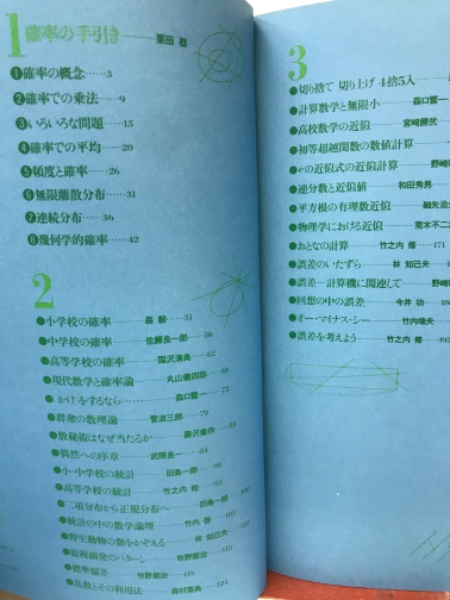 1 確率の手引き——栗田 稔
❶確率の概念……3
❷確率での乗法……9
❸いろいろな問題……15
❹確率での平均……20
❺頻度と確率……26
❻無限離散分布……31
❼連続分布……36
❽幾何学的確率……42
2
●小学校の確率——森 毅……51
●中学校の確率——佐藤良一郎……56
●高等学校の確率——国沢清典……62
●現代数学と確率論——丸山儀四郎……66
●かけをするなら……森口繁一……72
●群衆の数理論——菅波三郎……79
●数秘術はなぜ当たるか——藤沢偉作
●偶然への序章——武隈良一……84
●小・中学校の統計——田島一郎……90
●高等学校の統計——竹之内 脩
●二項分布から正規分布へ——田島一郎
●統計の中の数学論理——竹内 啓
●野生動物の数をかぞえる——林 知己夫
●脱税摘発のパターン——牧野都治……115
●標準偏差——牧野都治……119
●乱数とその利用法——森村英典……124
3
●切り捨て 切り上げ 4捨5入
●計算数学と無限小——森口繁一
●高校数学の近似——宮崎勝弐
●初等超越関数の数値計算
●eの近似式の近似計算——野崎
●連分数と近似値——和田秀男
●平方根の有理数近似——細矢治
●物理学における近似——荒木不二
●おとなの計算——竹之内 脩……171
●誤差のいたずら——林 知己夫
●誤差—計算機に関連して——野崎
●回想の中の誤差——今井 功
●オー・マイナス・シー——竹内端夫
●誤差を考えよう——竹之内 脩……195